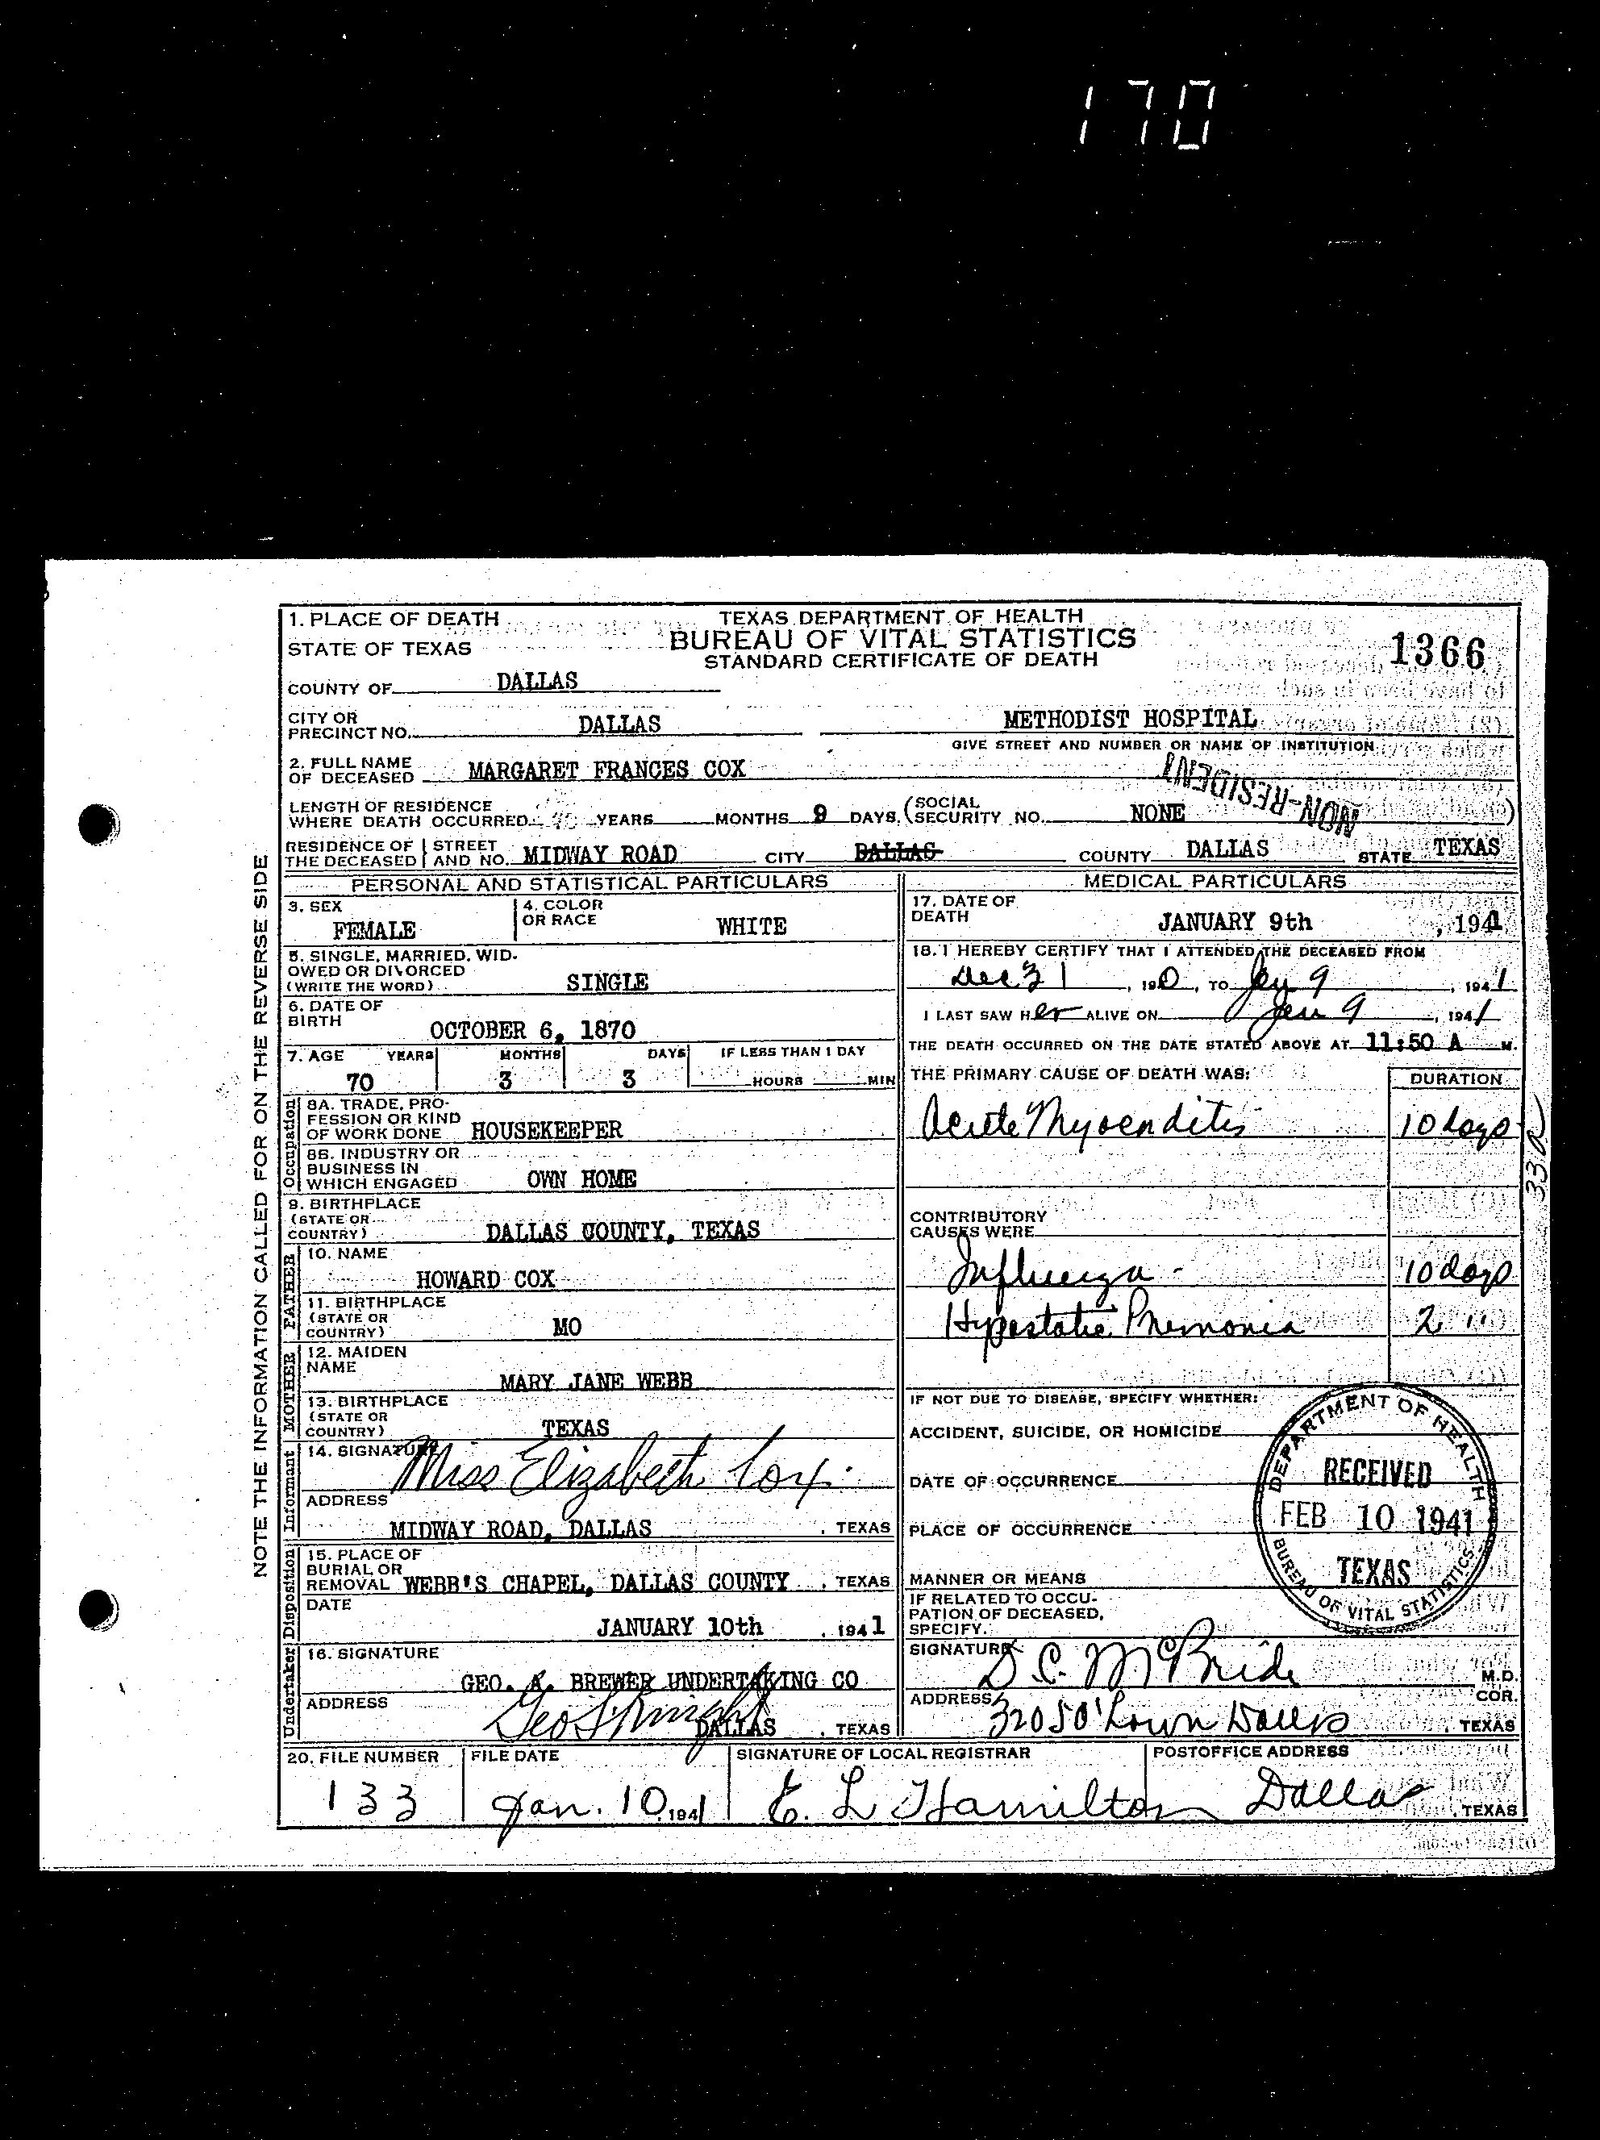 170
1. PLACE OF DEATH
TEXAS DEPARTMENT OF HEALTH
STATE OF TEXAS
BUREAU OF VITAL STATISTICS
1366
STANDARD CERTIFICATE OF DEATH
COUNTY OF DALLAS
CITY OR
PRECINCT NO. DALLAS METHODIST HOSPITAL
GIVE STREET AND NUMBER OR NAME OF INSTITUTION
2. FULL NAME
OF DECEASED MARGARET FRANCES COX
NON-RESIDENT
LENGTH OF RESIDENCE
WHERE DEATH OCCURRED YEARS MONTHS 9 DAYS. (SOCIAL
SECURITY NO. NONE )
RESIDENCE OF
THE DECEASED
STREET
AND NO. MIDWAY ROAD CITY DALLAS COUNTY DALLAS STATE TEXAS
NOTE THE INFORMATION CALLED FOR ON THE REVERSE SIDE
PERSONAL AND STATISTICAL PARTICULARS
3. SEX
FEMALE
4. COLOR
OR RACE WHITE
5. SINGLE, MARRIED, WID-
OWED OR DIVORCED
(WRITE THE WORD) SINGLE
6. DATE OF
BIRTH OCTOBER 6, 1870
7. AGE YEARS MONTHS DAYS IF LESS THAN 1 DAY
70 3 3 HOURS MIN
Occupation
8A. TRADE, PRO-
FESSION OR KIND
OF WORK DONE HOUSEKEEPER
8B. INDUSTRY OR
BUSINESS IN
WHICH ENGAGED OWN HOME
9. BIRTHPLACE
(STATE OR
COUNTRY) DALLAS COUNTY, TEXAS
FATHER
10. NAME
HOWARD COX
11. BIRTHPLACE
(STATE OR
COUNTRY) MO
MOTHER
12. MAIDEN
NAME
MARY JANE WEBB
13. BIRTHPLACE
(STATE OR
COUNTRY) TEXAS
Informant
14. SIGNATURE Miss Elizabeth Cox.
ADDRESS
MIDWAY ROAD, DALLAS , TEXAS
Disposition
15. PLACE OF
BURIAL OR
REMOVAL WEBB'S CHAPEL, DALLAS COUNTY , TEXAS
DATE
JANUARY 10th , 1941
Undertaker
16. SIGNATURE
GEO. A. BREWER UNDERTAKING CO
ADDRESS
DALLAS , TEXAS
MEDICAL PARTICULARS
17. DATE OF
DEATH JANUARY 9th , 1941
18. I HEREBY CERTIFY THAT I ATTENDED THE DECEASED FROM
Dec 31 , 190 , TO Jan 9 , 1941
I LAST SAW HER ALIVE ON Jan 9 , 1941
THE DEATH OCCURRED ON THE DATE STATED ABOVE AT 11:50 A M.
THE PRIMARY CAUSE OF DEATH WAS: DURATION
Acute Myocarditis 10 days
33a
CONTRIBUTORY
CAUSES WERE
Influenza - 10 days
Hypostatic Pnemonia 2 "
IF NOT DUE TO DISEASE, SPECIFY WHETHER:
ACCIDENT, SUICIDE, OR HOMICIDE
DATE OF OCCURRENCE
PLACE OF OCCURRENCE
MANNER OR MEANS
DEPARTMENT OF HEALTH
RECEIVED
FEB 10 1941
TEXAS
BUREAU OF VITAL STATISTICS
IF RELATED TO OCCU-
PATION OF DECEASED,
SPECIFY.
SIGNATURE D C. McBride M.D.
COR.
ADDRESS Dallas , TEXAS
20. FILE NUMBER FILE DATE SIGNATURE OF LOCAL REGISTRAR POSTOFFICE ADDRESS
133 Jan. 10, 1941 E. L Hamilton Dallas , TEXAS